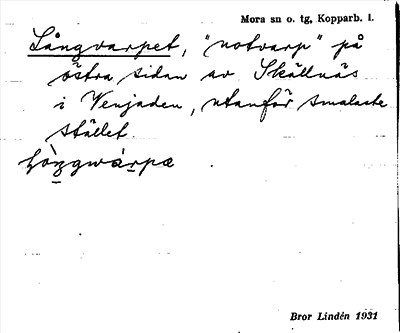 Mora sn o. tg, Kopparb. l.
Långvarpet, "notvarp" på
östra sidan av Skällnäs
i Venjaden, utanför smalaste
stället.
Bror Lindén 1931